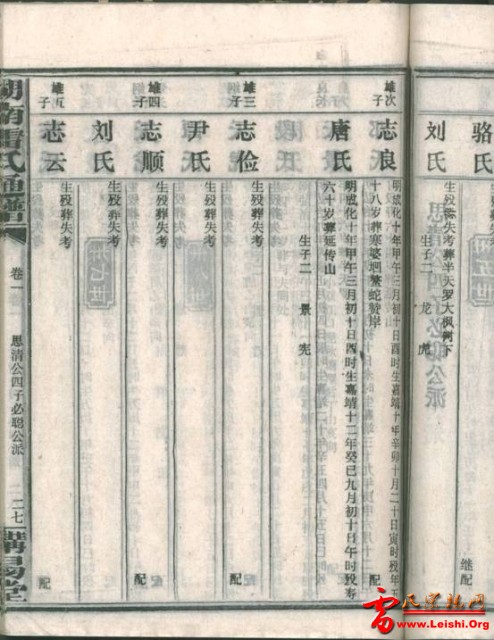 骆氏
继配
生殁缺失考葬半天罗大枫树下
刘氏
生子二 龙虎
雄次子
志良
配
明成化十年甲午三月初十日酉时生嘉靖十年辛卯十月二十日寅时殁年五
十八岁葬寨婆垇鳌蛇赞岸
唐氏
明成化十年甲午三月初十日酉时生嘉靖十二年癸巳九月初十日午时殁寿
六十岁葬延传山
生子二 景宪
雄三子
志俭
配
生殁葬失考
尹氏
生殁葬失考
雄四子
志顺
配
生殁葬失考
刘氏
生殁葬失考
雄五子
志云
配
生殁葬失考
湖南雷氏通谱
卷一
思清公四子必聪公派
二七
講易堂
雷氏宗亲网
www.Leishi.Org